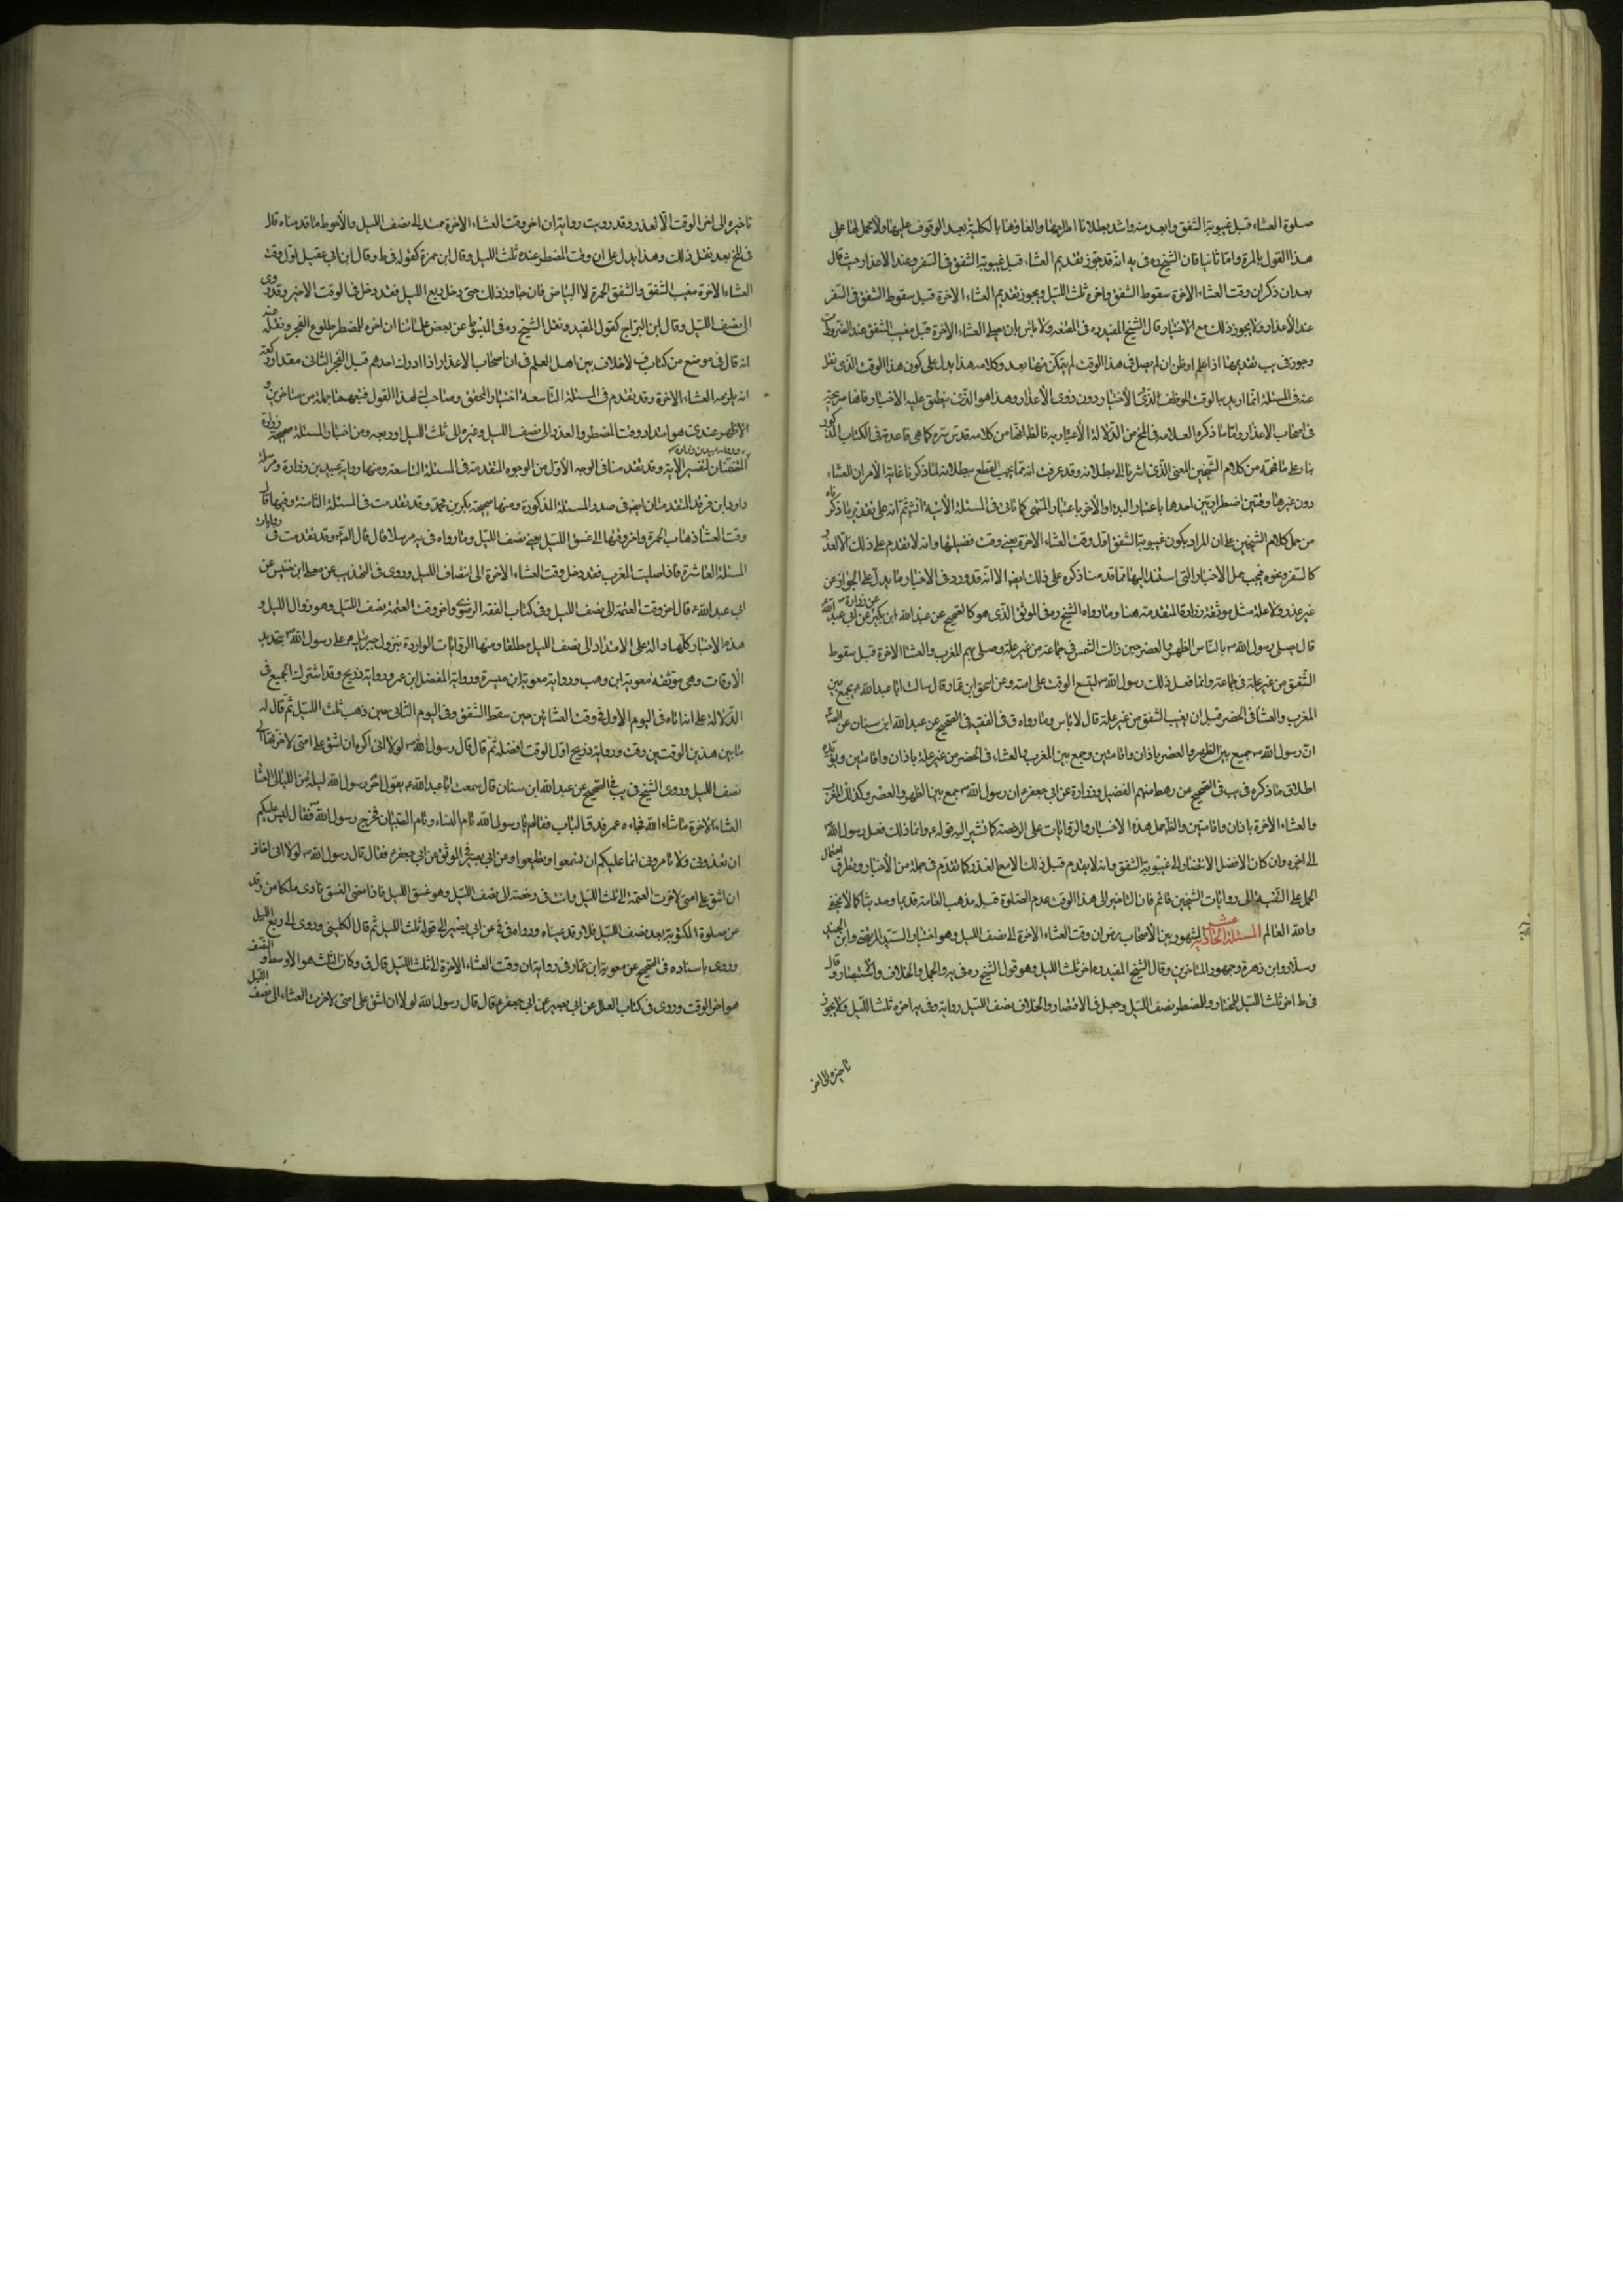 صلوة العشاء قبل غيبوبة الشفق وابعد منه واشد بطلانا اطراحها والغاؤها بالكلية بعد الوقوف عليها ولا محمل لها على
هذا القول بالمرة واما ثانيا فان الشيخ ره في يه انه قد جوز تقديم العشاء قبل غيبوبة الشفق في السفر وعند الاعذار حيث قال
بعد ان ذكر ان وقت العشاء الاخرة سقوط الشفق واخره ثلث الليل ويجوز تقديم العشاء الاخرة قبل سقوط الشفق في السفر
عند الاعذار ولا يجوز ذلك مع الاختيار قال الشيخ المفيد ره في المقنعه ولا باس بان يصلى العشاء الاخرة قبل مغيب الشفق عند الضرورات
وجوز في يب تقديمها اذا علم او ظن ان لم يصل في هذا الوقت لم يتمكن منها بعد وكلامه هذا يدل على كون هذا الوقت الذى نقل
عنه في المسئلة انما اريد به الوقت الموظف لذوى الاختيار دون ذوى الاعذار وهذا هو الذى ينطبق عليه الاخبار فانها صريحة
فى اصحاب الاعذار واما ما ذكره العلامه في المخ من الدلالة الاعتبار به فالظ انها من كلامه قدس سره كما هي قاعدته في الكتاب المذكور
بناء على ما فهمه من كلام الشيخين المعنى الذى اشرنا الى بطلانه وقد عرفت انه مما يجب القطع ببطلانه لما ذكرنا غاية الامر ان العشاء
دون غيرها وقتين اضطراريين احدها باعتبار البدء والاخر باعتبار المنتهى كما تاتى في المسئلة الاتية انش ثم انه على تقدير ما ذكرناه
من حمل كلام الشيخين على ان المراد بكون غيبوبة الشفق اول وقت العشاء الاخرة يعني وقت فضيلتها وانه لا تقدم على ذلك الا لعذر
كالسفر ونحوه فيجب حمل الاخبار التى استند اليها مما قدمنا ذكره على ذلك ايضا الا انه قد ورد في الاخبار ما يدل على الجواز من
غير عذر ولا علة مثل موثقة زرارة المتقدمه هنا وما رواه الشيخ ره في الموثق الذى هو كالصحيح عن عبد الله ابن بكير عن زرارة عن ابي عبد الله
قال صلى رسول الله ص بالناس الظهر والعصر حين زالت الشمس في جماعة من غير علة وصلى بهم المغرب والعشاء الاخرة قبل سقوط
الشفق من غير علة في جماعة وانما فعل ذلك رسول الله ص ليتسع الوقت على امته وعن اسحق ابن عمار قال سالت ابا عبد الله ع يجمع بين
المغرب والعشاء في الحضر قبل ان يغيب الشفق من غير علة قال لا باس وما رواه ق في الفقيه في الصحيح عن عبد الله ابن سنان عن الصادق
ان رسول الله ص جمع بين الظهر والعصر باذان واقامتين وجمع بين المغرب والعشاء في الحضر من غير علة باذان واقامتين ويؤيده
اطلاق ما ذكره في يب في الصحيح عن رهط منهم الفضيل وزرارة عن ابي جعفر ع ان رسول الله ص جمع بين الظهر والعصر وكذلك المغرب
والعشاء الاخرة باذان واقامتين والظ حمل هذه الاخبار والروايات على الرخصة كما تشير اليه قوله ع وانما ذلك فعل رسول الله ص
الى اخره وان كان الافضل الانتظار الى غيبوبة الشفق وانه لا يقدم قبل ذلك الا مع العذر كما تقدم في جملة من الاخبار وتطرق احتمال
الحمل على التقية الى روايات الشيخين قائم فان التاخير الى هذا الوقت بعدم الصلوة قبله مذهب العامة قديما وحديثا كما لا يخفى
والله العالم المسئلة الحادية عشر المشهور بين الاصحاب رضوان وقت العشاء الاخرة الى نصف الليل وهو اختيار السيد المرتضى وابن الجنيد
وسلار وابن زهرة وجمهور المتاخرين وقال الشيخ المفيد ره اخره ثلث الليل وهو قول الشيخ ره في يه والجمل والخلاف والاقتصار وقال
فى ط اخره ثلث الليل للمختار وللمضطر نصف الليل وجعل في الاقتصار والخلاف نصف الليل رواية وفي يه اخره ثلث الليل ولا يجوز
تاخيره الى اخر
تاخيره الى اخر الوقت الا لعذر وقد رويت رواية ان اخر وقت العشاء الاخرة ممتد الى نصف الليل والاحوط ما قدمناه قال
فى المخ بعد نقل ذلك وهذا يدل على ان وقت المضطر عنده ثلث الليل وقال ابن حمزة كقوله في ط وقال ابن ابي عقيل اول وقت
العشاء الاخرة مغيب الشفق والشفق الحمرة لا البياض فان جاوز ذلك حتى دخل ربع الليل فقد دخل في الوقت الاخير وقد روى
الى نصف الليل وقال ابن البراج كقول المفيد ونقل الشيخ ره في المبسوط عن بعض علمائنا ان اخره للمضطر طلوع الفجر ونقل عنه
انه قال في موضع من كتاب ف لا خلاف بين اهل العلم في ان اصحاب الاعذار اذا ادرك احدهم قبل الفجر الثانى مقدار ركعة
انه يلزمه العشاء الاخرة وقد تقدم في المسئلة التاسعة اختيار المحقق وصاحب لك لهذا القول وتبعهما جملة من متاخرى و
الاظهر عندى هو امتداد وقت المضطر والعذر الى نصف الليل وغيره الى ثلث الليل او ربعه ومن اخبار المسئلة صحيحة زرارة
المتضمنان لتفسير الاية وقد تقدمنا في الوجه الاول من الوجوه المتقدمة في المسئلة التاسعة ومنها رواية عبيد بن زرارة ومرسلة
داود ابن فرقد المتقدمتان ايضا في صدر المسئلة المذكورة ومنها صحيحة بكر بن محمد وقد تقدمت في المسئلة الثامنة وفيها واول
وقت العشاء ذهاب الحمرة واخر وقتها الى غسق الليل يعني نصف الليل وما رواه في يه مرسلا قال قال الصادق وقد تقدمت في روايات
المسئلة العاشرة فاذا صليت المغرب فقد دخل وقت العشاء الاخرة الى انتصاف الليل وروى في التهذيب عن معلى ابن خنيس عن
ابي عبد الله ع قال اخر وقت العتمة الى نصف الليل وفي كتاب الفقه الرضوى واخر وقت العتمة نصف الليل وهو زوال الليل و
هذه الاخبار كلها دالة على الامتداد الى نصف الليل مطلقا ومنها الروايات الواردة بنزول جبرئيل ع على رسول الله ص بتحديد
الاوقات وهي موثقة معوية ابن وهب ورواية معوية ابن ميسرة ورواية المفضل ابن عمر ورواية ذريح وقد اشترك الجميع في
الدلالة على انه اتاه في اليوم الاول في وقت العشاء حين سقط الشفق وفي اليوم الثانى حين ذهب ثلث الليل ثم قال له
ما بين هذين الوقتين وقت ورواية ذريح اول الوقت افضله ثم قال قال رسول الله ص لولا انى اكره ان اشق على امتى لاخرتها الى
نصف الليل وروى الشيخ في يب في الصحيح عن عبد الله ابن سنان قال سمعت ابا عبد الله ع يقول اخر رسول الله ليلة من الليالى العشاء
العشاء الاخرة ما شاء الله فجاءه عمر فدق الباب فقال يا رسول الله نام النساء ونام الصبيان فخرج رسول الله ص فقال ليس عليكم
ان تؤذونى ولا تامرونى انما عليكم ان تسمعوا وتطيعوا وعن ابي بصير في الموثق عن ابي جعفر ع فقال قال رسول الله ص لولا انى اخاف
ان اشق على امتى لاخرت العتمة الى ثلث الليل وانت في رخصة الى نصف الليل وهو غسق الليل فاذا مضى الغسق نادى ملكان من رقد
عن صلوة المكتوبة بعد نصف الليل فلا رقدت عيناه ورواه في في عن ابي بصير الى قوله ثلث الليل ثم قال الكلينى وروى الى ربع الليل
وروى باسناده في الصحيح عن معوية ابن عمار في رواية ان وقت العشاء الاخرة الى ثلث الليل قال في وكان الثلث هو الاوسط والنصف
هو اخر الوقت وروى ق في كتاب العلل عن ابي بصير عن ابي جعفر ع قال قال رسول الله لولا ان اشق على امتى لاخرت العشاء الى نصف الليل